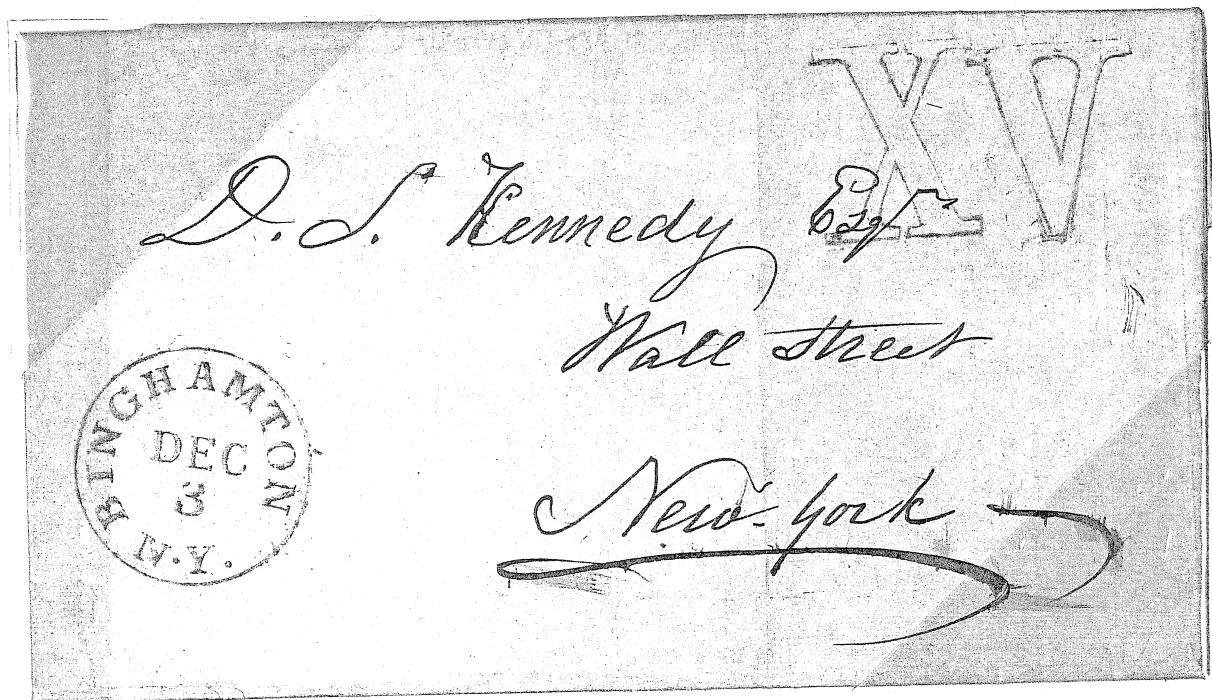 XV
D. S. Kennedy Esqr
Wall Street
New-York
BINGHAMTON
DEC
3
N.Y.